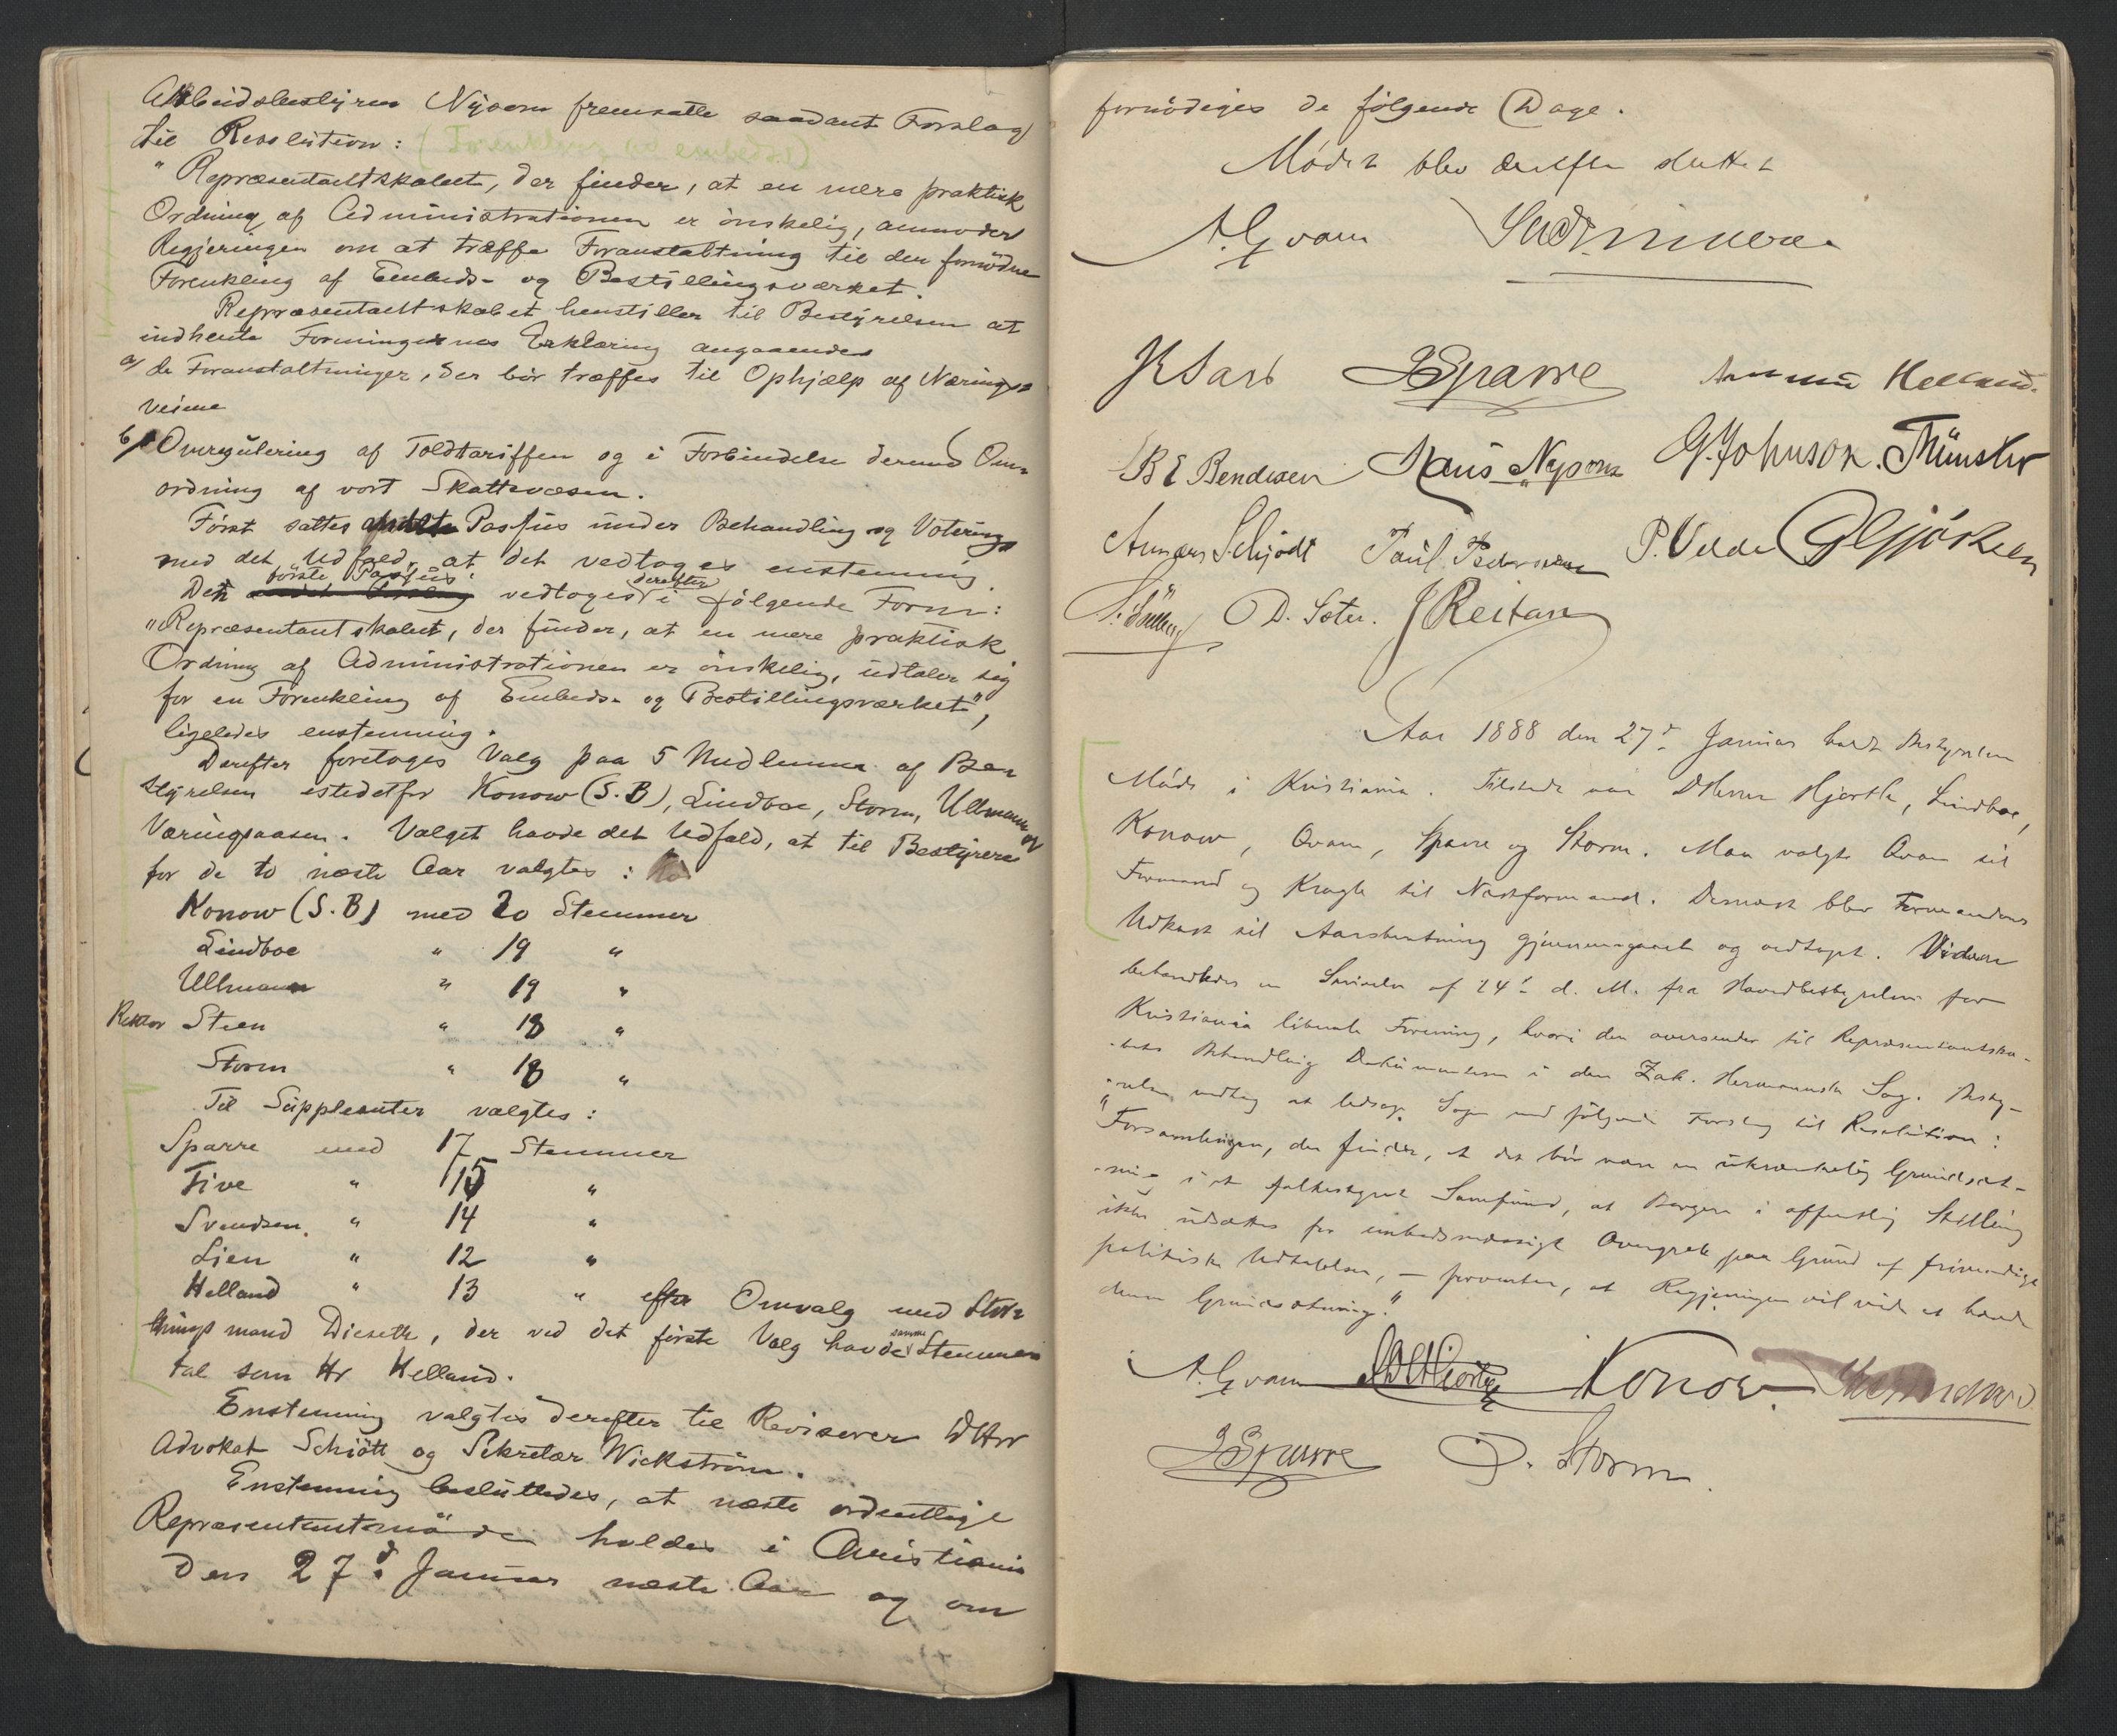 Arbeidsbestyrer Nysom fremsatte saadant Forslag
til Resolution: (Forenkling av embedsv.)
"Repræsentantskabet, der finder, at en mere praktisk
Ordning af Administrationen er ønskelig, anmoder
Regjeringen om at træffe Foranstaltning til den fornødne
Forenkling af Embeds- og Bestillingsværket.
Repræsentantskabet henstiller til Bestyrelsen at
indhente Foreningernes Erklæring angaaende
a/ de Foranstaltninger, der bör træffes til Ophjælp af Nærings-
veiene
b/ Omregulering af Toldtariffen og i Forbindelse dermed Om-
ordning af vort Skattevæsen.
Først sattes Passus under Behandling og Votering
med det Udfald, at det vedtoges enstemmig.
Den første Passus vedtoges derefter i følgende Form:
"Repræsentantskabet, der finder, at en mere praktisk
Ordning af Administrationen er ønskelig, udtaler sig
for en Forenkling af Embeds- og Bestillingsværket",
ligeledes enstemmig.
Derefter foretoges Valg paa 5 Medlemmer af Be-
styrelsen istedetfor Konow (S.B), Lindboe, Storm, Ullmann og
Væringsaasen. Valget havde det Udfald, at til Bestyrere
for de to næste Aar valgtes:
Konow (S.B) med 20 Stemmer
Lindboe " 19 "
Ullmann " 19 "
Rektor Steen " 18 "
Storm " 18 "
Til Suppleanter valgtes:
Sparre med 17 Stemmer
Five " 15 "
Svendsen " 14 "
Lien " 12 "
Helland " 13 " efter Omvalg med Stor-
thingsmand Dieseth, der ved det første Valg havde samme Stemme-
tal som Hr Helland.
Enstemmig valgtes derefter til Revisorer DHrr
Advokat Schiött og Sekretær Wickstrøm.
Enstemmig besluttedes, at næste ordentlige
Repræsentantmøde holdes i Christiania
den 27d Januar næste Aar og om
fornödiges de følgende Dage.
Mødet blev derefter sluttet
A. Qvam
JE Sars J Sparre Amund Helland.
B E Bendixen Hans Nysom G. Johnson. Münster
Annæus Schjödt Paul Pedersen P. Velde
D. Sæter. J Reitan
Aar 1888 den 27de Januar holdt Bestyrelsen
Møde i Kristiania. Tilstede var DHerrer Hjorth, Lindboe,
Konow, Qvam, Sparre og Storm. Man valgte Qvam til
Formand og Krogh til Næstformand. Dernæst blev Formandens
Udkast til Aarsberetning gjennemgaaet og vedtaget. Videre
behandledes en Skrivelse af 24de d. M. fra Hovedbestyrelsen for
Kristiania liberale Forening, hvori den oversender til Repræsentantska-
bets Behandling Dokumenterne i den Zak. Hermannske Sag. Besty-
relsen vedtog at ledsage Sagen med følgende Forslag til Resolution:
"Forsamlingen, der finder, at det bör være en ukrænkelig Grundsæt-
ning i et folkestyret Samfund, at Borgere i offentlig Stilling
ikke udsættes for embedsmæssigt Overgreb paa Grund af frimodige
politiske Udtalelser, – forventer, at Regjeringen vil vide at hævde
denne Grundsætning."
A. Qvam Konow.
J Sparre D. Storm.